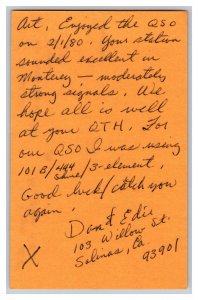 Art, Enjoyed the QSO
on 2/1/80. Your station
sounded excellent in
Monterey – moderately
strong signals. We
hope all is well
at your QTH. For
our QSO I was using
101B/444 shure/3-element.
Good luck/catch you
again.
Dan & Edie
103 Willow St.
Salinas, Ca
93901
X